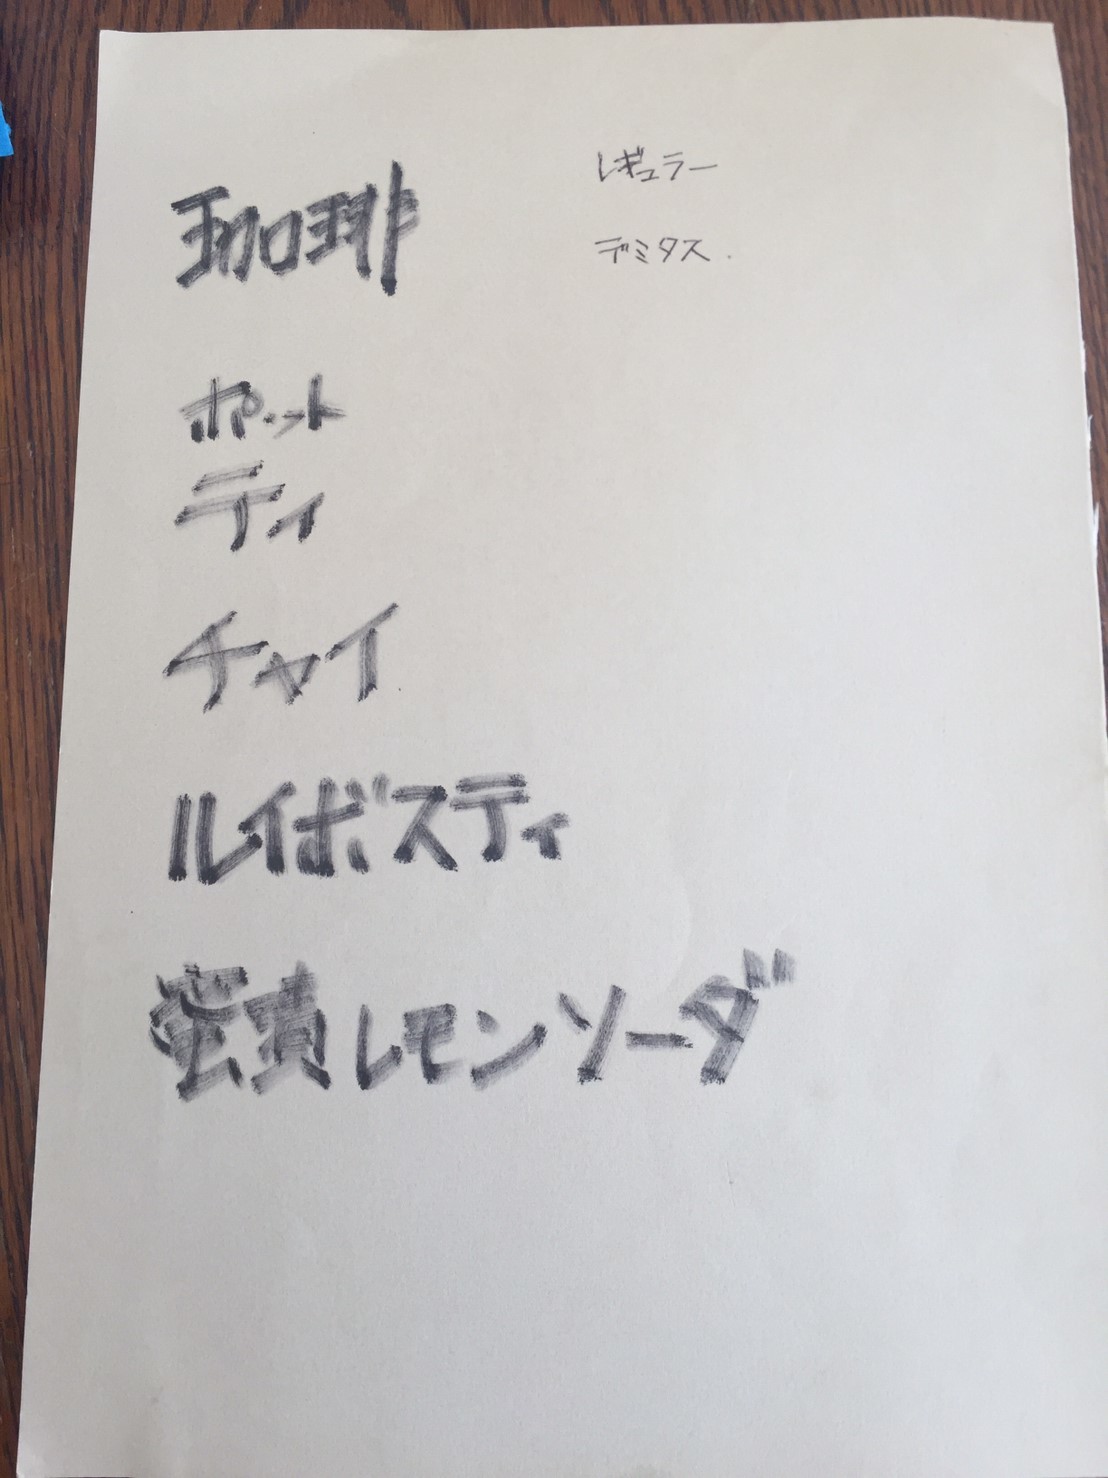 珈琲
レギュラー
デミタス.
ポット
ティ
チャイ
ルイボスティ
蜜漬レモンソーダ